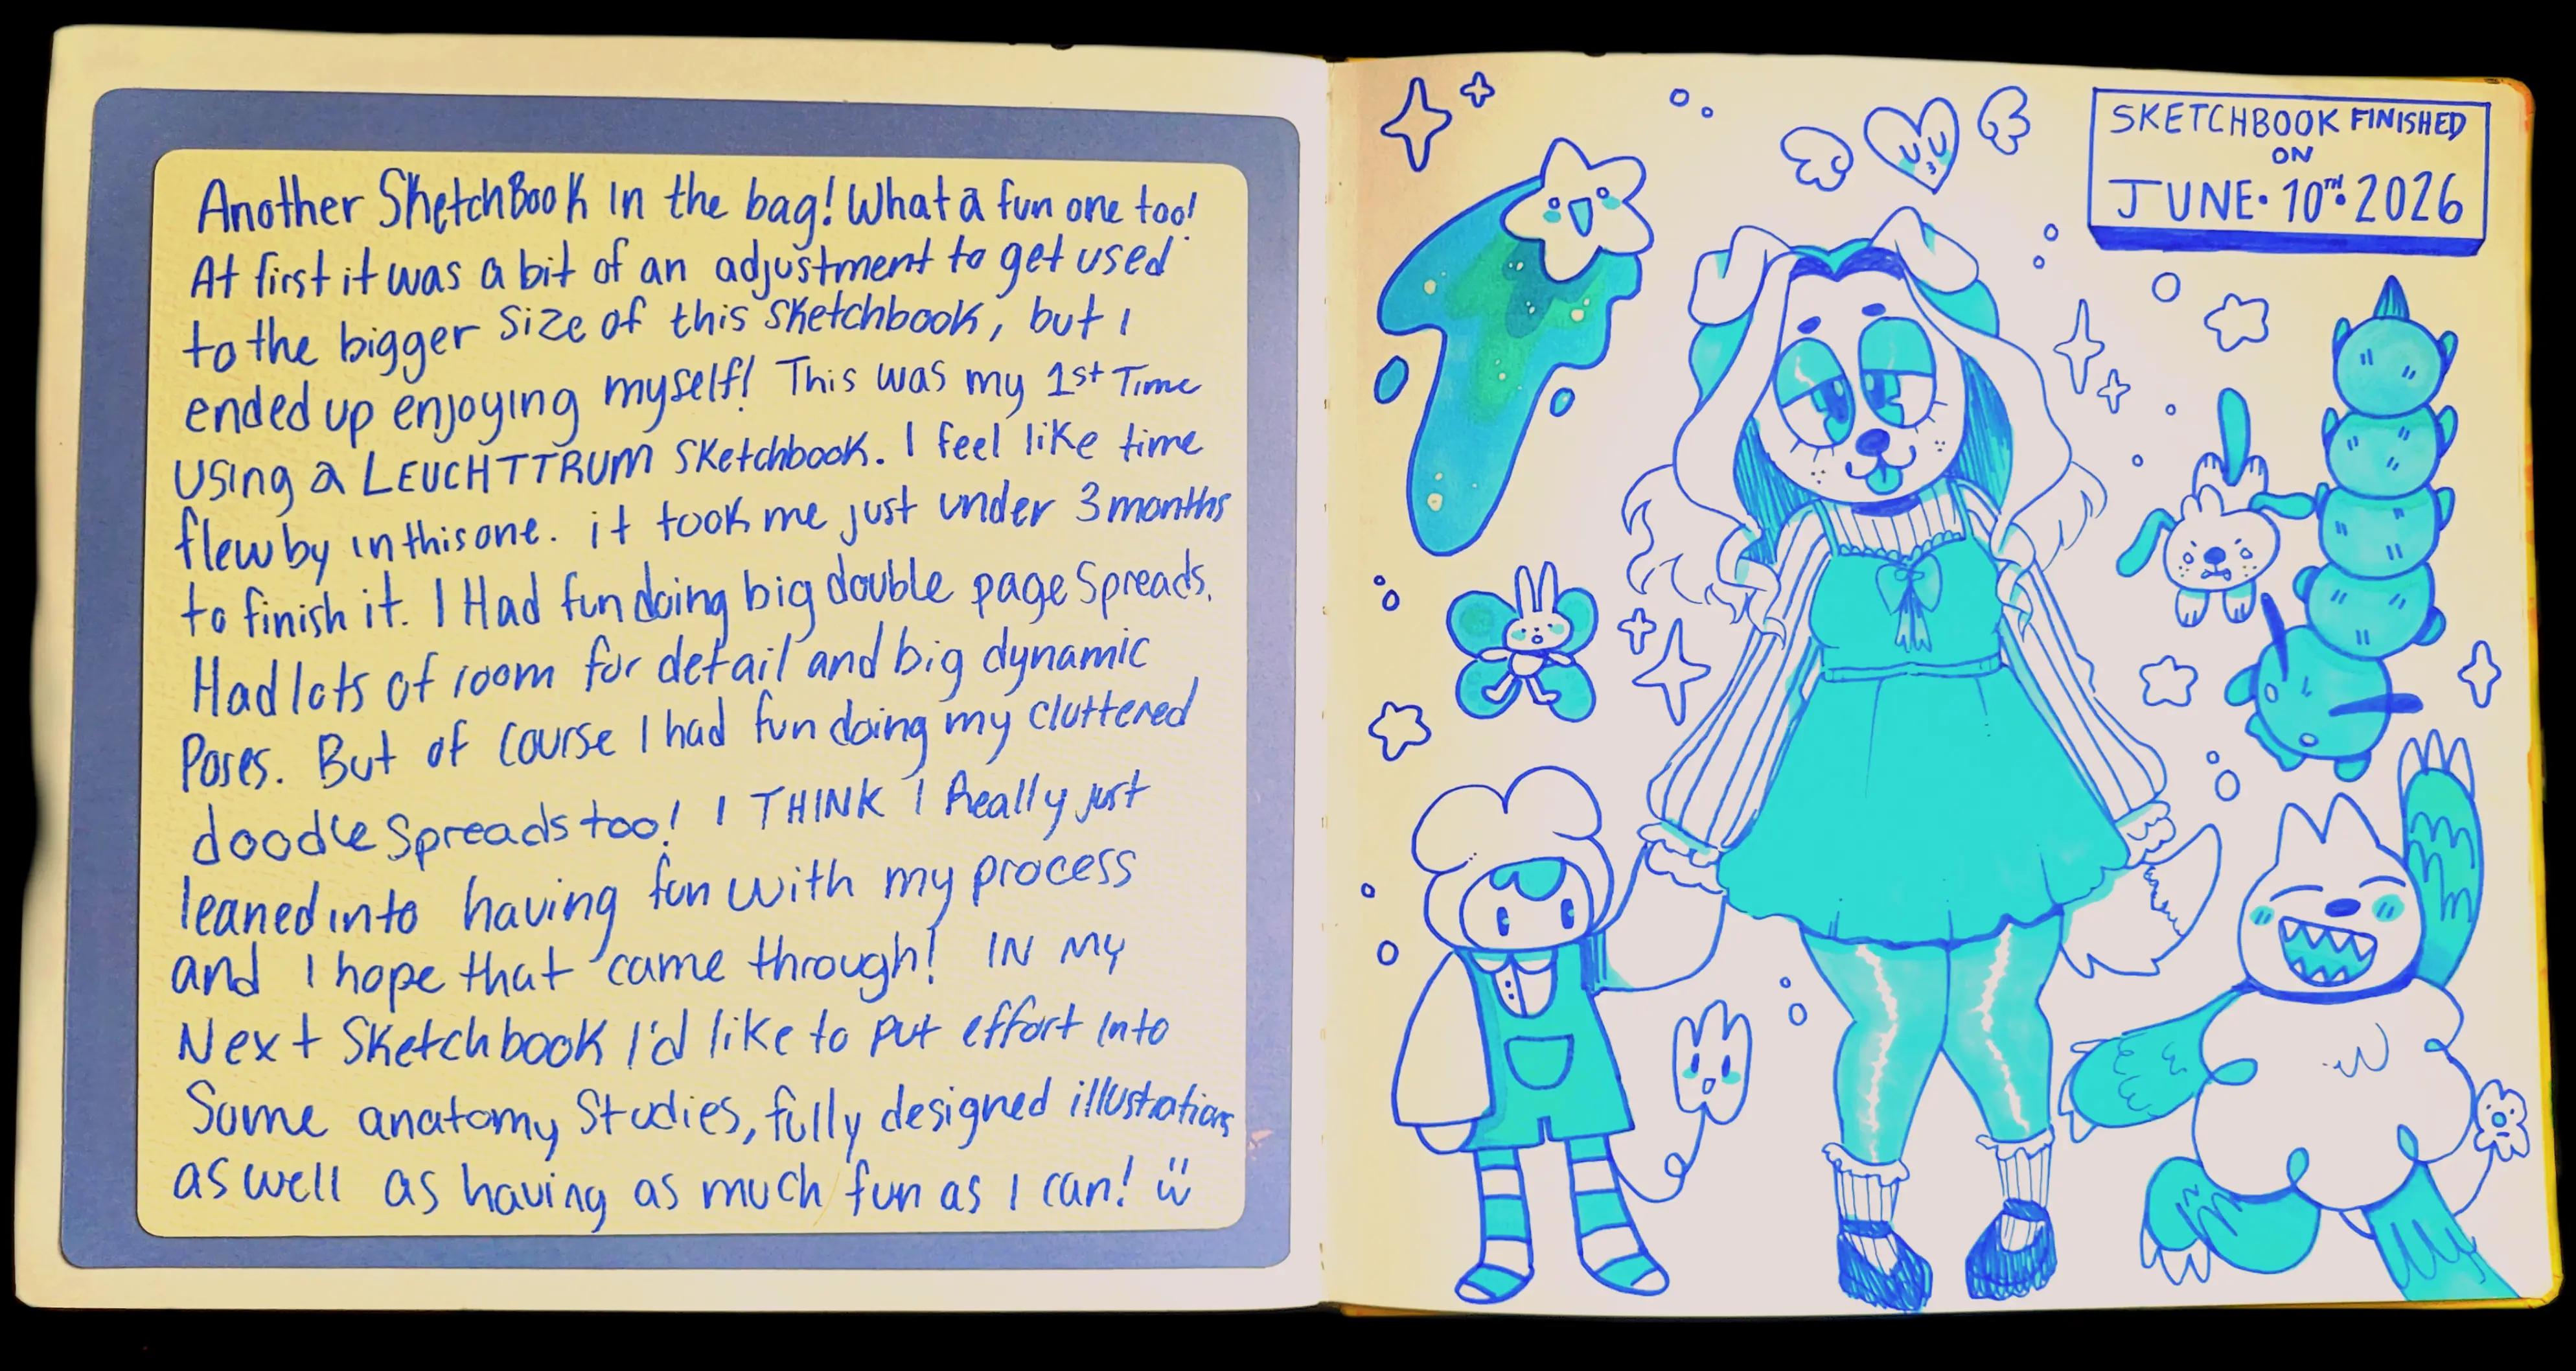 Another SketchBook in the bag! What a fun one too!
At first it was a bit of an adjustment to get used
to the bigger size of this sketchbook, but I
ended up enjoying myself! This was my 1st Time
using a LEUCHTTRUM sketchbook. I feel like time
flew by in this one. it took me just under 3 months
to finish it. I Had fun doing big double page Spreads.
Had lots of room for detail and big dynamic
Poses. But of course I had fun doing my cluttered
doodle Spreads too! I THINK I Really just
leaned into having fun with my process
and I hope that came through! IN MY
Next Sketchbook I'd like to put effort into
Some anatomy Studies, fully designed illustrations
as well as having as much fun as I can!
SKETCHBOOK FINISHED
ON
JUNE. 10TH. 2026